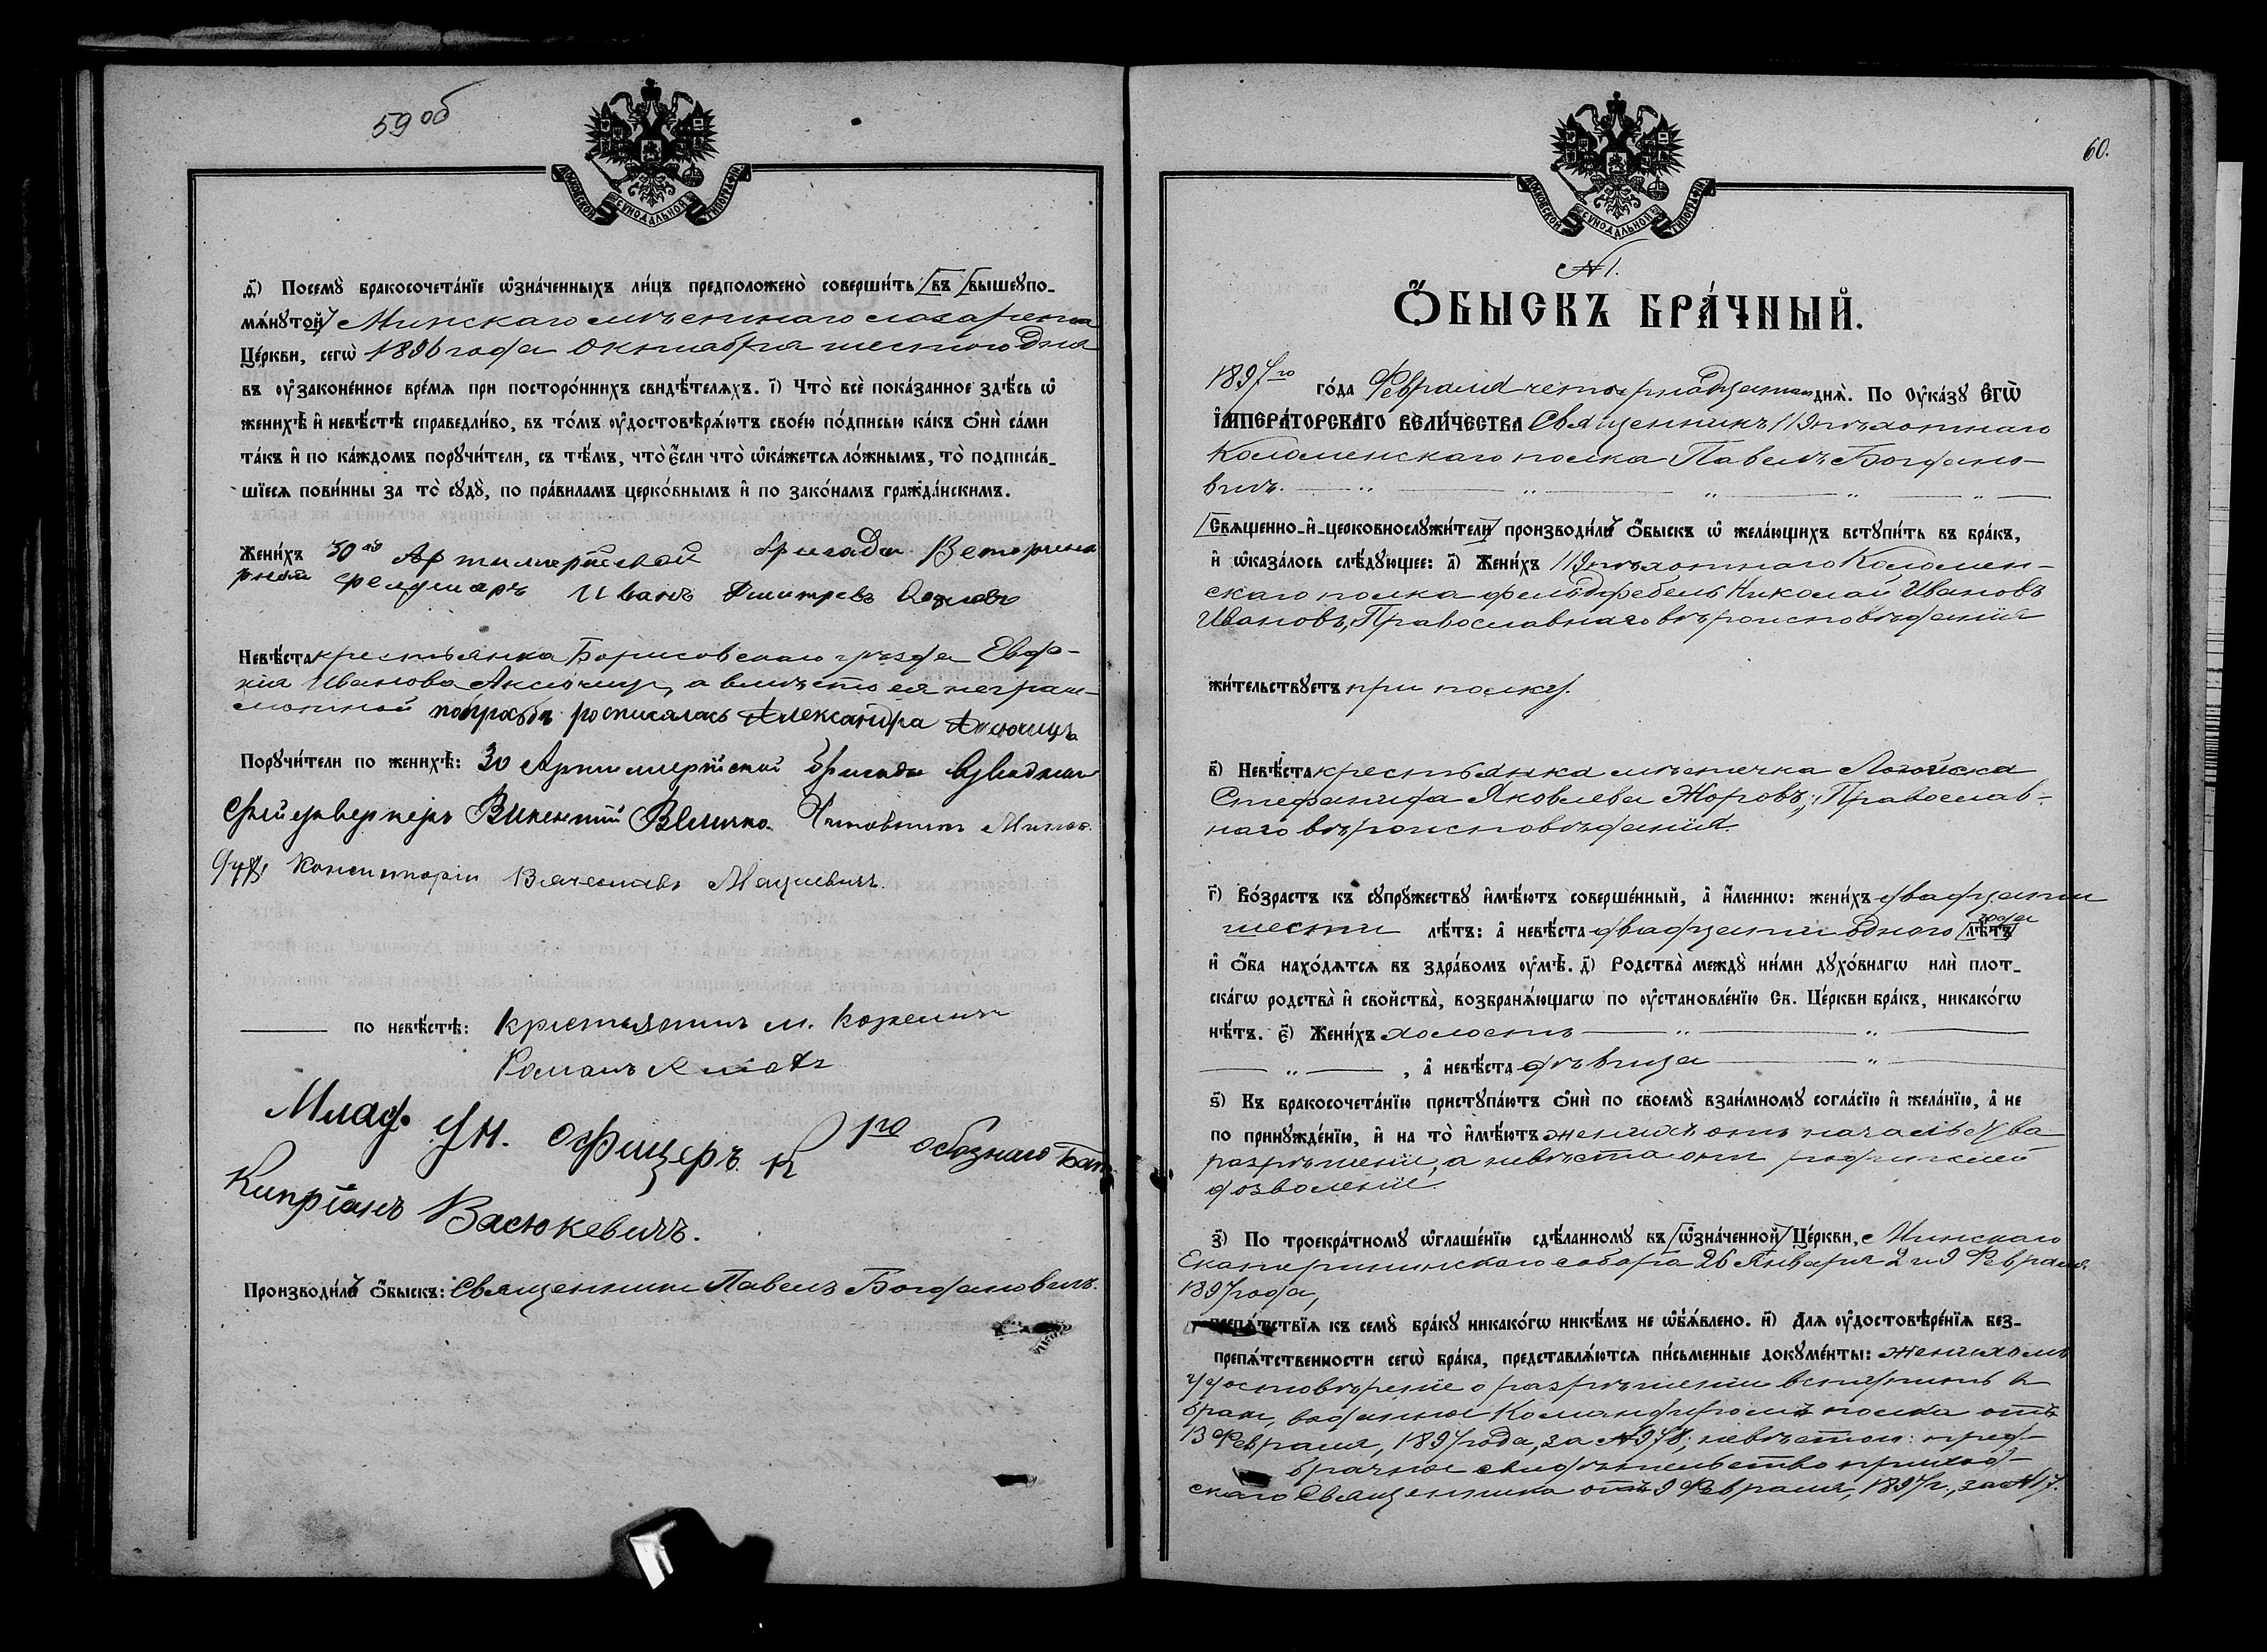 59 об
МОСКОВСКОЙ СѴНОДАЛЬНОЙ ТИПОГРАФІИ
д҃) Посемꙋ̀ бракосочета́нїе ѡ҆зна́ченныхъ ли́цъ предположено̀ соверши́ть въ вышеꙋпо-
мѧ́нꙋтой Минскаго мѣстнаго лазарета
Це́ркви, сегѡ̀ 1896 года Октября шестого дня
въ ᲂу҆законе́нное вре́мѧ при посторо́ннихъ свидѣ́телѧхъ. і҃) Что̀ всѐ пока́занное здѣ́сь ѡ҆
женихѣ̀ и҆ невѣ́стѣ справедли́во, въ то́мъ ᲂу҆достовѣрѧ́ютъ свое́ю по́дписью ка́къ ѻ҆нѝ са́ми
та́къ и҆ по ка́ждомъ порꙋчи́тели, съ тѣ́мъ, что̀ є҆́сли что̀ ѡ҆ка́жетсѧ ло́жнымъ, то̀ подписа́в-
шїесѧ пови́нны за то̀ сꙋдꙋ̀, по пра́виламъ церко́внымъ и҆ по зако́намъ гражда́нскимъ.
Жени́хъ 30ой Артиллерійской бригады Ветерина
рный фелдшаръ Иванъ Дмитревъ
Невѣ́ста крестьянка Борисовскаго уѣзда Евдо-
кія Иванова Аксючиц, а вмѣсто ея неграм-
мотной по просьбѣ росписалась Александра Аксючицъ
Порꙋчи́тели по женихѣ̀: 30 Артиллерійской бригады
фейерверкеръ Викентій Величко. Чиновникъ Минск.
Дух. Консисторіи Вячеславъ Мацкевичъ.
по невѣ́стѣ: крестьянинъ м.
Романъ
Млад. Ун. Офицеръ К 1го обознаго Бат.
Кипріанъ Васюкевичъ.
Производи́лъ ѻ҆́быскъ: Священникъ Павелъ Богдановичъ.
60.
МОСКОВСКОЙ СѴНОДАЛЬНОЙ ТИПОГРАФІИ
№ 1.
Ѻ҆́БЫСКЪ БРА́ЧНЫЙ.
1897го го́да Февраля четырнадцатаго днѧ̀. По Оу҆ка́зꙋ Є҆гѡ̀
І҆мпера́торскагѡ вели́чества Священникъ 119 пѣхотнаго
Коломенскаго полка Павелъ Богдано-
вичъ.
Свѧщенно-и҆-церковнослꙋжи́тели производи́лъ ѻ҆́быскъ ѡ҆ жела́ющихъ встꙋпи́ть въ бра́къ,
и҆ ѡ҆каза́лось слѣ́дꙋющее: а҃) Жени́хъ 119 пѣхотнаго Коломен-
скаго полка фельдфебель Николай Ивановъ
Ивановъ, Православнаго вѣроисповѣданія
жи́тельствꙋетъ при полку.
в҃) Невѣ́ста крестьянка мѣстечка Логойска
Стефанида Яковлева Жоровъ, Православ-
наго вѣроисповѣданія.
г҃) Во́зрастъ къ сꙋпрꙋ́жествꙋ и҆мѣ́ютъ соверше́нный, а҆ и҆́меннѡ: жени́хъ двадцати
шести лѣ́тъ: а҆ невѣ́ста двадцати одного года лѣ́тъ
и҆ ѻ҆́ба нахо́дѧтсѧ въ здра́вомъ ᲂу҆мѣ̀. д҃) Родства̀ междꙋ̀ ни́ми дꙋхо́внагѡ илѝ плот-
ска́гѡ родства̀ и҆ свойства̀, возбранѧ́ющагѡ по ᲂу҆становле́нїю Св. Це́ркви бра́къ, никако́гѡ
нѣ́тъ. є҃) Жени́хъ холостъ
, а҆ невѣ́ста дѣвица
ѕ҃) Къ бракосочета́нїю пристꙋпа́ютъ ѻ҆нѝ по своемꙋ̀ взаи́мномꙋ согла́сїю и҆ жела́нїю, а҆ не
по принꙋжде́нїю, и҆ на то̀ и҆мѣ́ютъ женихъ отъ начальства
разрѣшеніе, а невѣста отъ родителей
дозволеніе.
з҃) По троекра́тномꙋ ѡ҆глаше́нїю сдѣ́ланномꙋ въ ѡ҆зна́ченной Це́ркви, Минскаго
Екатерининскаго собора 26 Января 2 и 9 Февраля
1897 года,
препѧ́тствїѧ къ семꙋ̀ бра́кꙋ никако́гѡ никѣ́мъ не ѡ҆б̾ѧ́влено. и҃) Длѧ ᲂу҆достовѣре́нїѧ без-
препѧ́тственности сегѡ̀ бра́ка, представлѧ́ютсѧ пи́сьменные докꙋме́нты: женихомъ
удостовѣреніе о разрѣшеніи вступить въ
бракъ, выданное Командиромъ полка отъ
13 Февраля, 1897 года, за № 978; невѣстою: пред-
брачное свидѣтельство приход-
скаго Священника отъ 9 Февраля, 1897 г., за № 17.